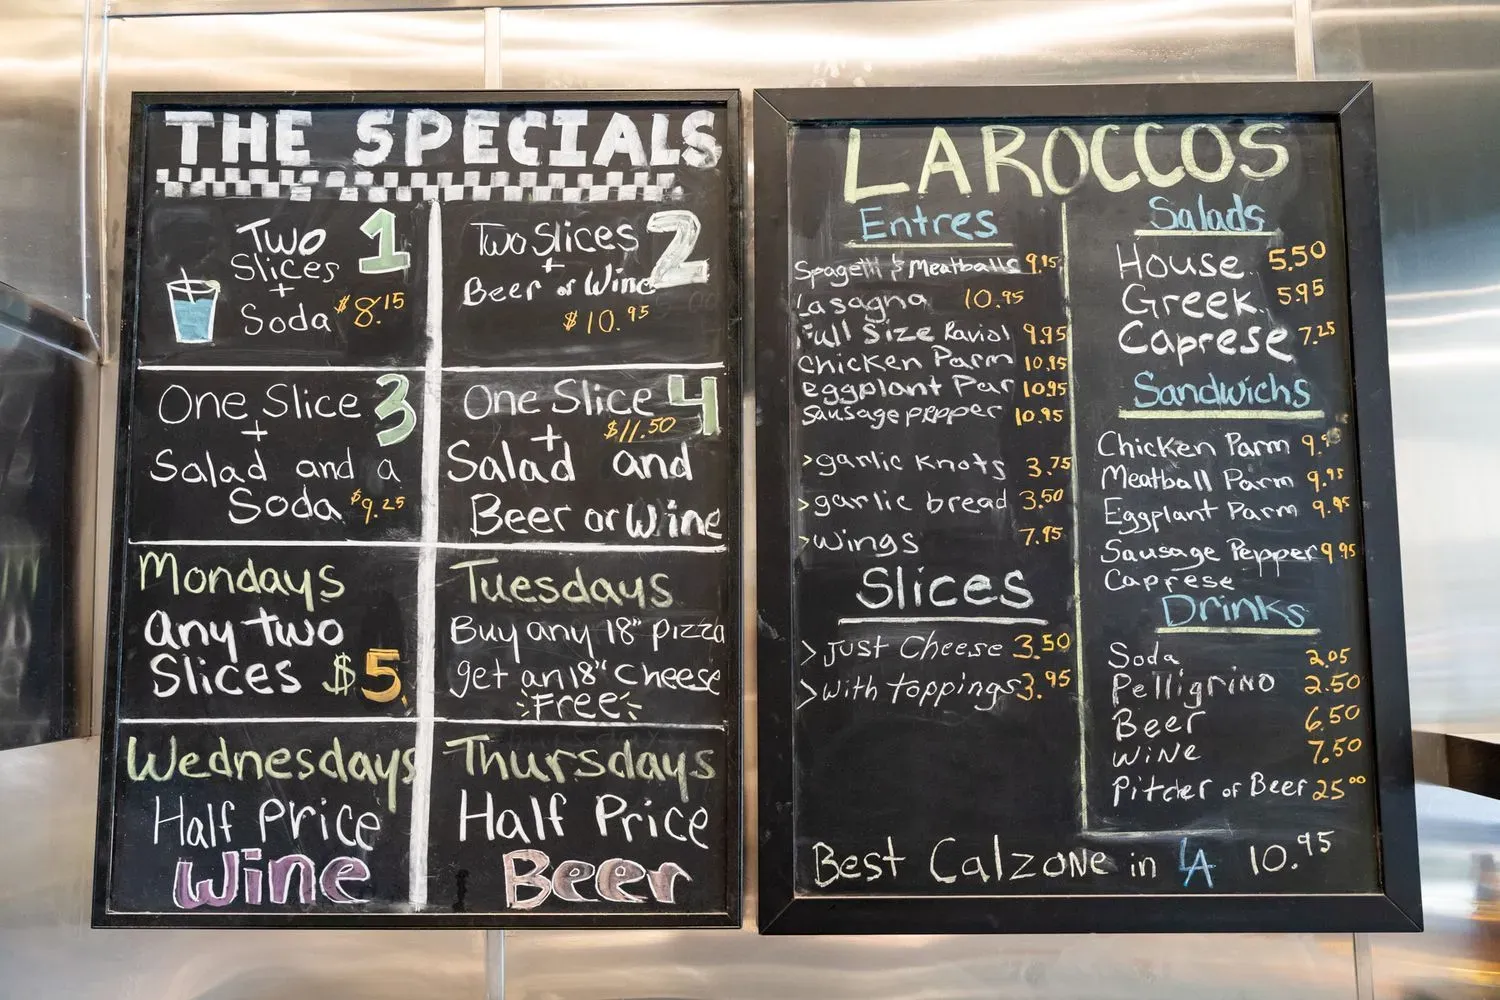 THE SPECIALS
1
Two
Slices
+
Soda $8.15
2
Two Slices
+
Beer or Wine
$10.95
3
One Slice
+
Salad and a
Soda $9.25
4
One Slice
$11.50
+
Salad and
Beer or Wine
Mondays
any two
Slices $5
Tuesdays
Buy any 18" pizza
get an 18" Cheese
Free
Wednesdays
Half Price
Wine
Thursdays
Half Price
Beer
LAROCCOS
Entres
Spagetti & Meatballs 9.95
Lasagna 10.95
Full Size Raviol 9.95
Chicken Parm 10.95
eggplant Par 10.95
Sausage pepper 10.95
>garlic knots 3.75
>garlic bread 3.50
>wings 7.95
Slices
>Just Cheese 3.50
>with toppings 3.95
Salads
House 5.50
Greek 5.95
Caprese 7.25
Sandwichs
Chicken Parm
Meatball Parm 9.95
Eggplant Parm 9.95
Sausage Pepper 9.95
Caprese
Drinks
Soda 2.05
Pelligrino 2.50
Beer 6.50
Wine 7.50
Pitcher of Beer 25.00
Best Calzone in LA 10.95